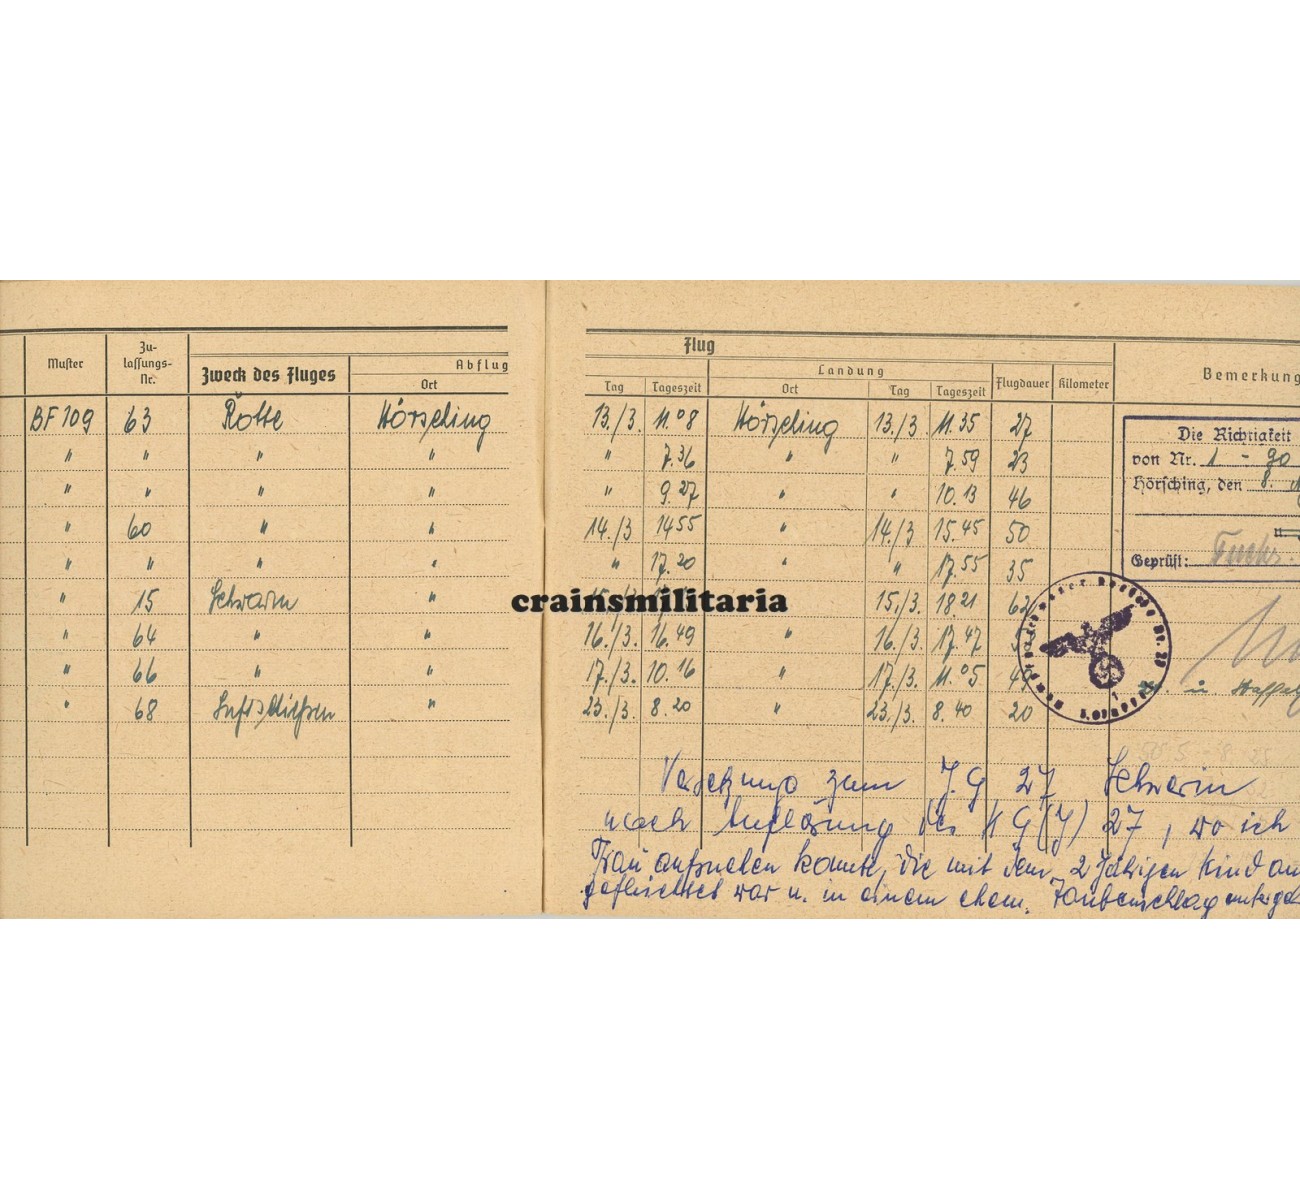 Flug
Muster Zu-lassungs-Nr. Zweck des Fluges Abflug Landung Flugdauer Kilometer Bemerkung
Ort Tag Tageszeit Ort Tag Tageszeit
BF 109 63 Rotte Hörsching 13./3. 11.08 Hörsching 13./3 11.35 27
" " " " " 7.36 " " 7.59 23
" " " " " 9.27 " " 10.13 46
" 60 " " 14./3 1455 " 14./3 15.45 50
" " " " " 17.20 " " 17.55 35
" 15 Schwarm " 15./3. 18 21 62
" 64 " " 16./3. 16.49 " 16./3. 17.47
" 66 " " 17./3. 10.16 " 17./3. 11.05
" 68 Luftschießen " 23./3. 8.20 " 23./3. 8.40 20
Die Richtigkeit
von Nr. 1 - 90
Hörsching, den 8.
Geprüft: Fuchs.
crainsmilitaria
u. Staffel
Versetzung zum J.G 27 Schwerin
nach Auflösung des KG(J) 27, wo ich
Frau aufsuchen konnte, die mit dem 2 jährigen Kind
geflüchtet war u. in einem ehem. Taubenschlag